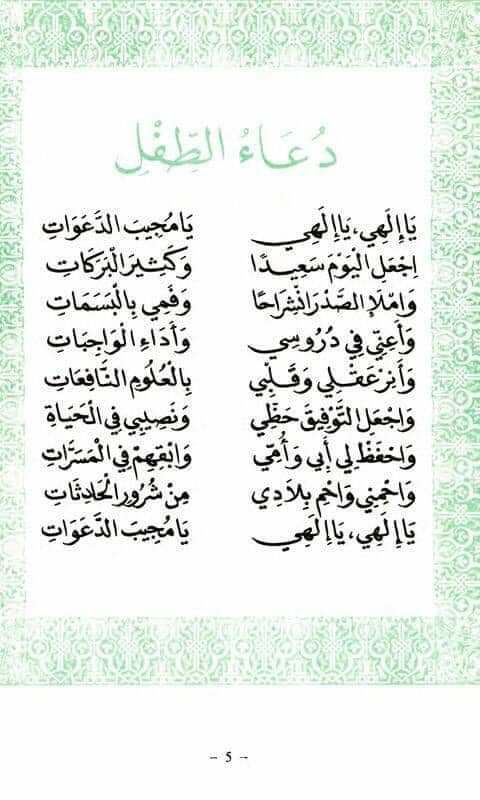 دُعَاءُ الطِّفْلِ
يَا إِلَهِي، يَا إِلَهِي يَا مُجِيبَ الدَّعَوَاتِ
اِجْعَلِ الْيَوْمَ سَعِيدًا وَكَثِيرَ الْبَرَكَاتِ
وَامْلَإِ الصَّدْرَ انْشِرَاحًا وَفَمِي بِالْبَسَمَاتِ
وَأَعِنِّي فِي دُرُوسِي وَأَدَاءِ الْوَاجِبَاتِ
وَأَنِرْ عَقْلِي وَقَلْبِي بِالْعُلُومِ النَّافِعَاتِ
وَاجْعَلِ التَّوْفِيقَ حَظِّي وَنَصِيبِي فِي الْحَيَاةِ
وَاحْفَظْ لِي أَبِي وَأُمِّي وَابْقِهِمْ فِي الْمَسَرَّاتِ
وَاحْمِنِي وَاحْمِ بِلَادِي مِنْ شُرُورِ الْحَادِثَاتِ
يَا إِلَهِي، يَا إِلَهِي يَا مُجِيبَ الدَّعَوَاتِ
- 5 -